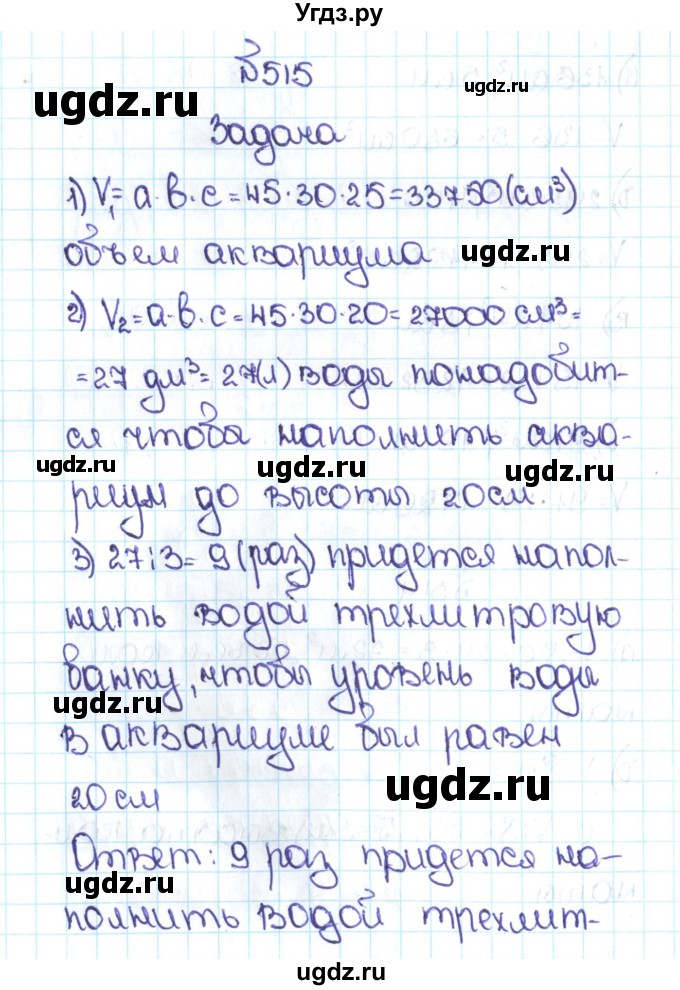 Угдз.ру
№515
ugdz.ru
ugdz.ru
Задача
1) V₁= a·в·c = 45·30·25=33750(см³)
объем аквариума
ugdz.ru
2) V₂=a·в·c = 45·30·20= 27000 см³=
=27 дм³= 27(л) воды понадобит-
ся чтобы наполнить аква-
ugdz.ru
ugdz.ru
ugdz.ru
риум до высоты 20см.
3) 27:3= 9(раз) придется напол-
нить водой трехлитровую
банку, чтобы уровень воды
ugdz.ru
в аквариуме был равен
20см
ugdz.ru
Ответ: 9 раз придется на-
ugdz.ru
полнить водой трехлит-
ugdz.ru
ugdz.ru